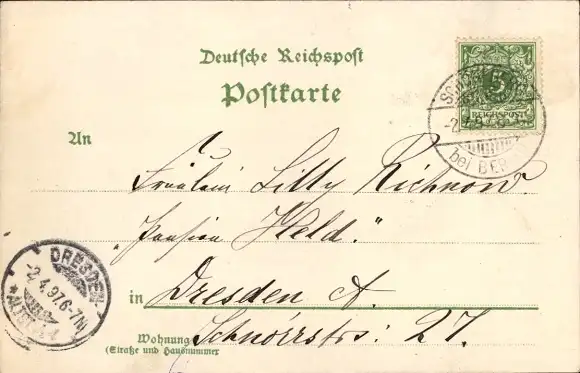 Deutsche Reichspost
Postkarte
5
REICHSPOST
bei BER
An
Fräulein Lilly Richnow
"Pension Held."
DRESDEN
-2.4.97.6-7N
in Dresden A.
Wohnung Schnorrstrs: 27.
(Straße und Hausnummer